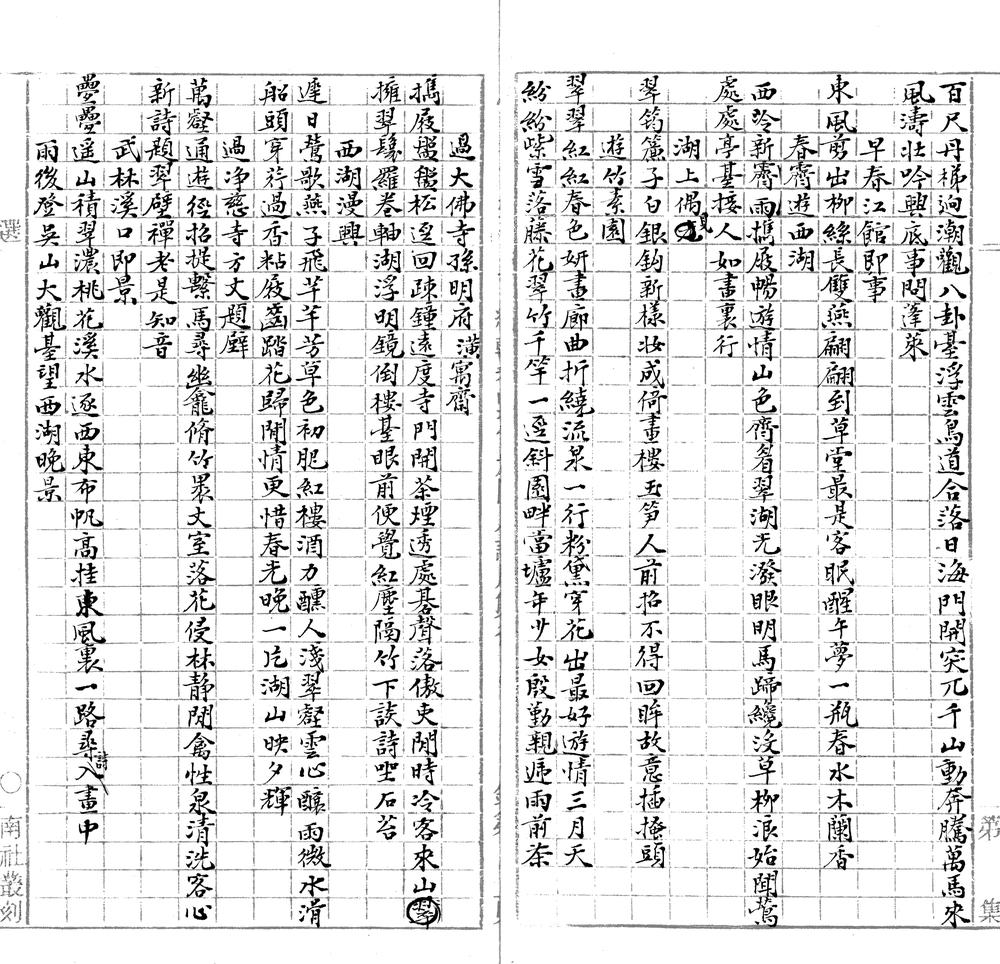 第 一 集
百尺丹梯迥潮觀八卦臺浮雲鳥道合落日海門開突兀千山動奔騰萬馬來
風濤壯吟興底事問蓬萊
早春江館即事
東風剪出柳絲長雙燕翩翩到草堂最是客眠醒午夢一瓶春水木蘭香
春霽遊西湖
西泠新霽雨攜屐暢遊情山色齊眉翠湖光潑眼明馬蹄纔沒草柳浪始聞鶯
處處亭基接人如畫裏行
湖上偶見
翠筠簾子白銀鈎新樣妝成倚畫樓玉笋人前招不得回眸故意插掩頭
遊竹素園
翠翠紅紅春色妍畫廊曲折繞流泉一行粉黛穿花出最好遊情三月天
紛紛紫雪落藤花翠竹千竿一逕斜園畔當壚年少女殷勤親遞雨前茶
過大佛寺孫明府潢寓齋
攜屐盤盤松逕回疎鍾遠度寺門開茶煙透處碁聲落傲吏閒時冷客來山翠
擁翠鬟羅卷軸湖浮明鏡倒樓基眼前便覺紅塵隔竹下談詩坐石苔
西湖漫興
遲日鶯歌燕子飛芊芊芳草色初肥紅樓酒力醺人淺翠壑雲心釀雨微水滑
船頭穿荇過香粘屐齒踏花歸閒情更惜春光晚一片湖山映夕輝
過净慈寺方丈題壁
萬壑通遊徑招提繫馬尋幽龕脩竹裏丈室落花侵林静閒禽性泉清洗客心
新詩題翠壁禪老是知音
武林溪口即景
疊疊遥山積翠濃桃花溪水逐西東布帆高挂東風裏一路尋詩入畫中
雨後登吳山大觀基望西湖晚景
選 〇 南社叢刻